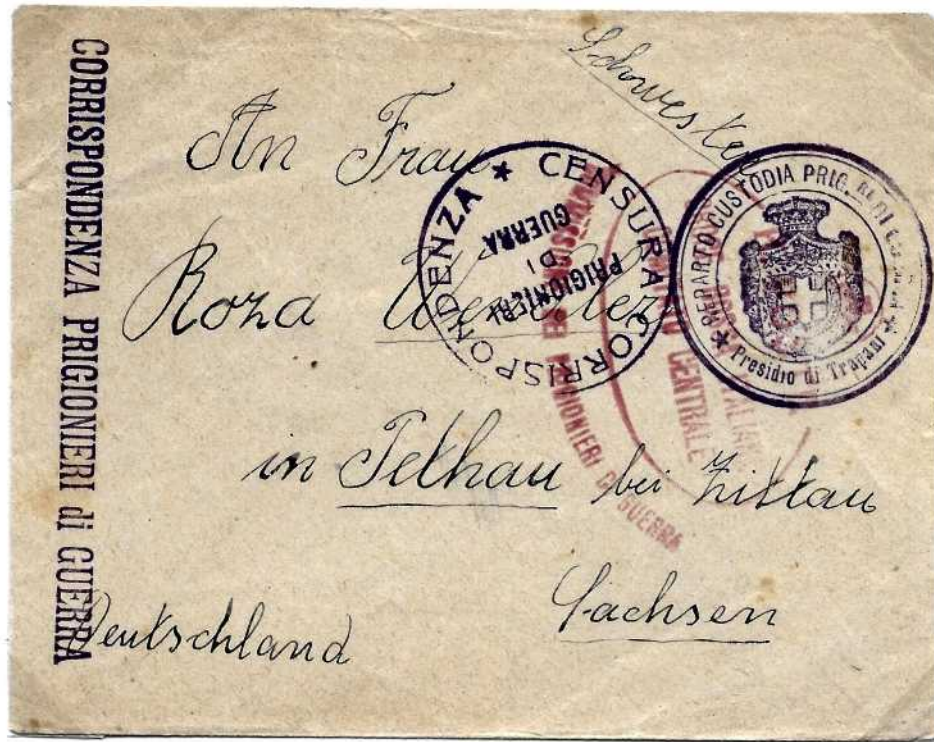 CORRISPONDENZA PRIGIONIERI di GUERRA
Schwester
An Frau
Roza
in Pethau bei Zittau
Sachsen
Deutschland
CENSURA CORRISPONDENZA ★
PRIGIONIERI
DI
GUERRA
★ REPARTO CUSTODIA PRIG.
Presidio di Trapani ★
CENTRALE
PRIGIONIERI GUERRA